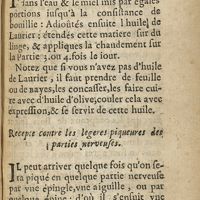 dans l'eau & le miel mis par égales
portions jusqu'à la consistance de
bouillie: Adioûtés ensuite l'huile de
Laurier; étendés cette matiere sur du
linge, & appliqués la chaudement sur
la Partie 3. ou 4. fois le iour.
Notez que si vous n'avez pas d'huile
de Laurier, il faut prendre de feuille
ou de bayes, les concasser, les faire cui-
re avec d'huile d'olive, couler cela avec
expression, & se servir de cette huile.
Recepte contre les legeres piqueures des
parties nerveuses.
IL peut arriver quelque fois qu'on se-
ra piqué en quelque partie nerveuse
par vne épingle, vne aiguille, ou par
quelque épine: d'où il s'ensuit vne